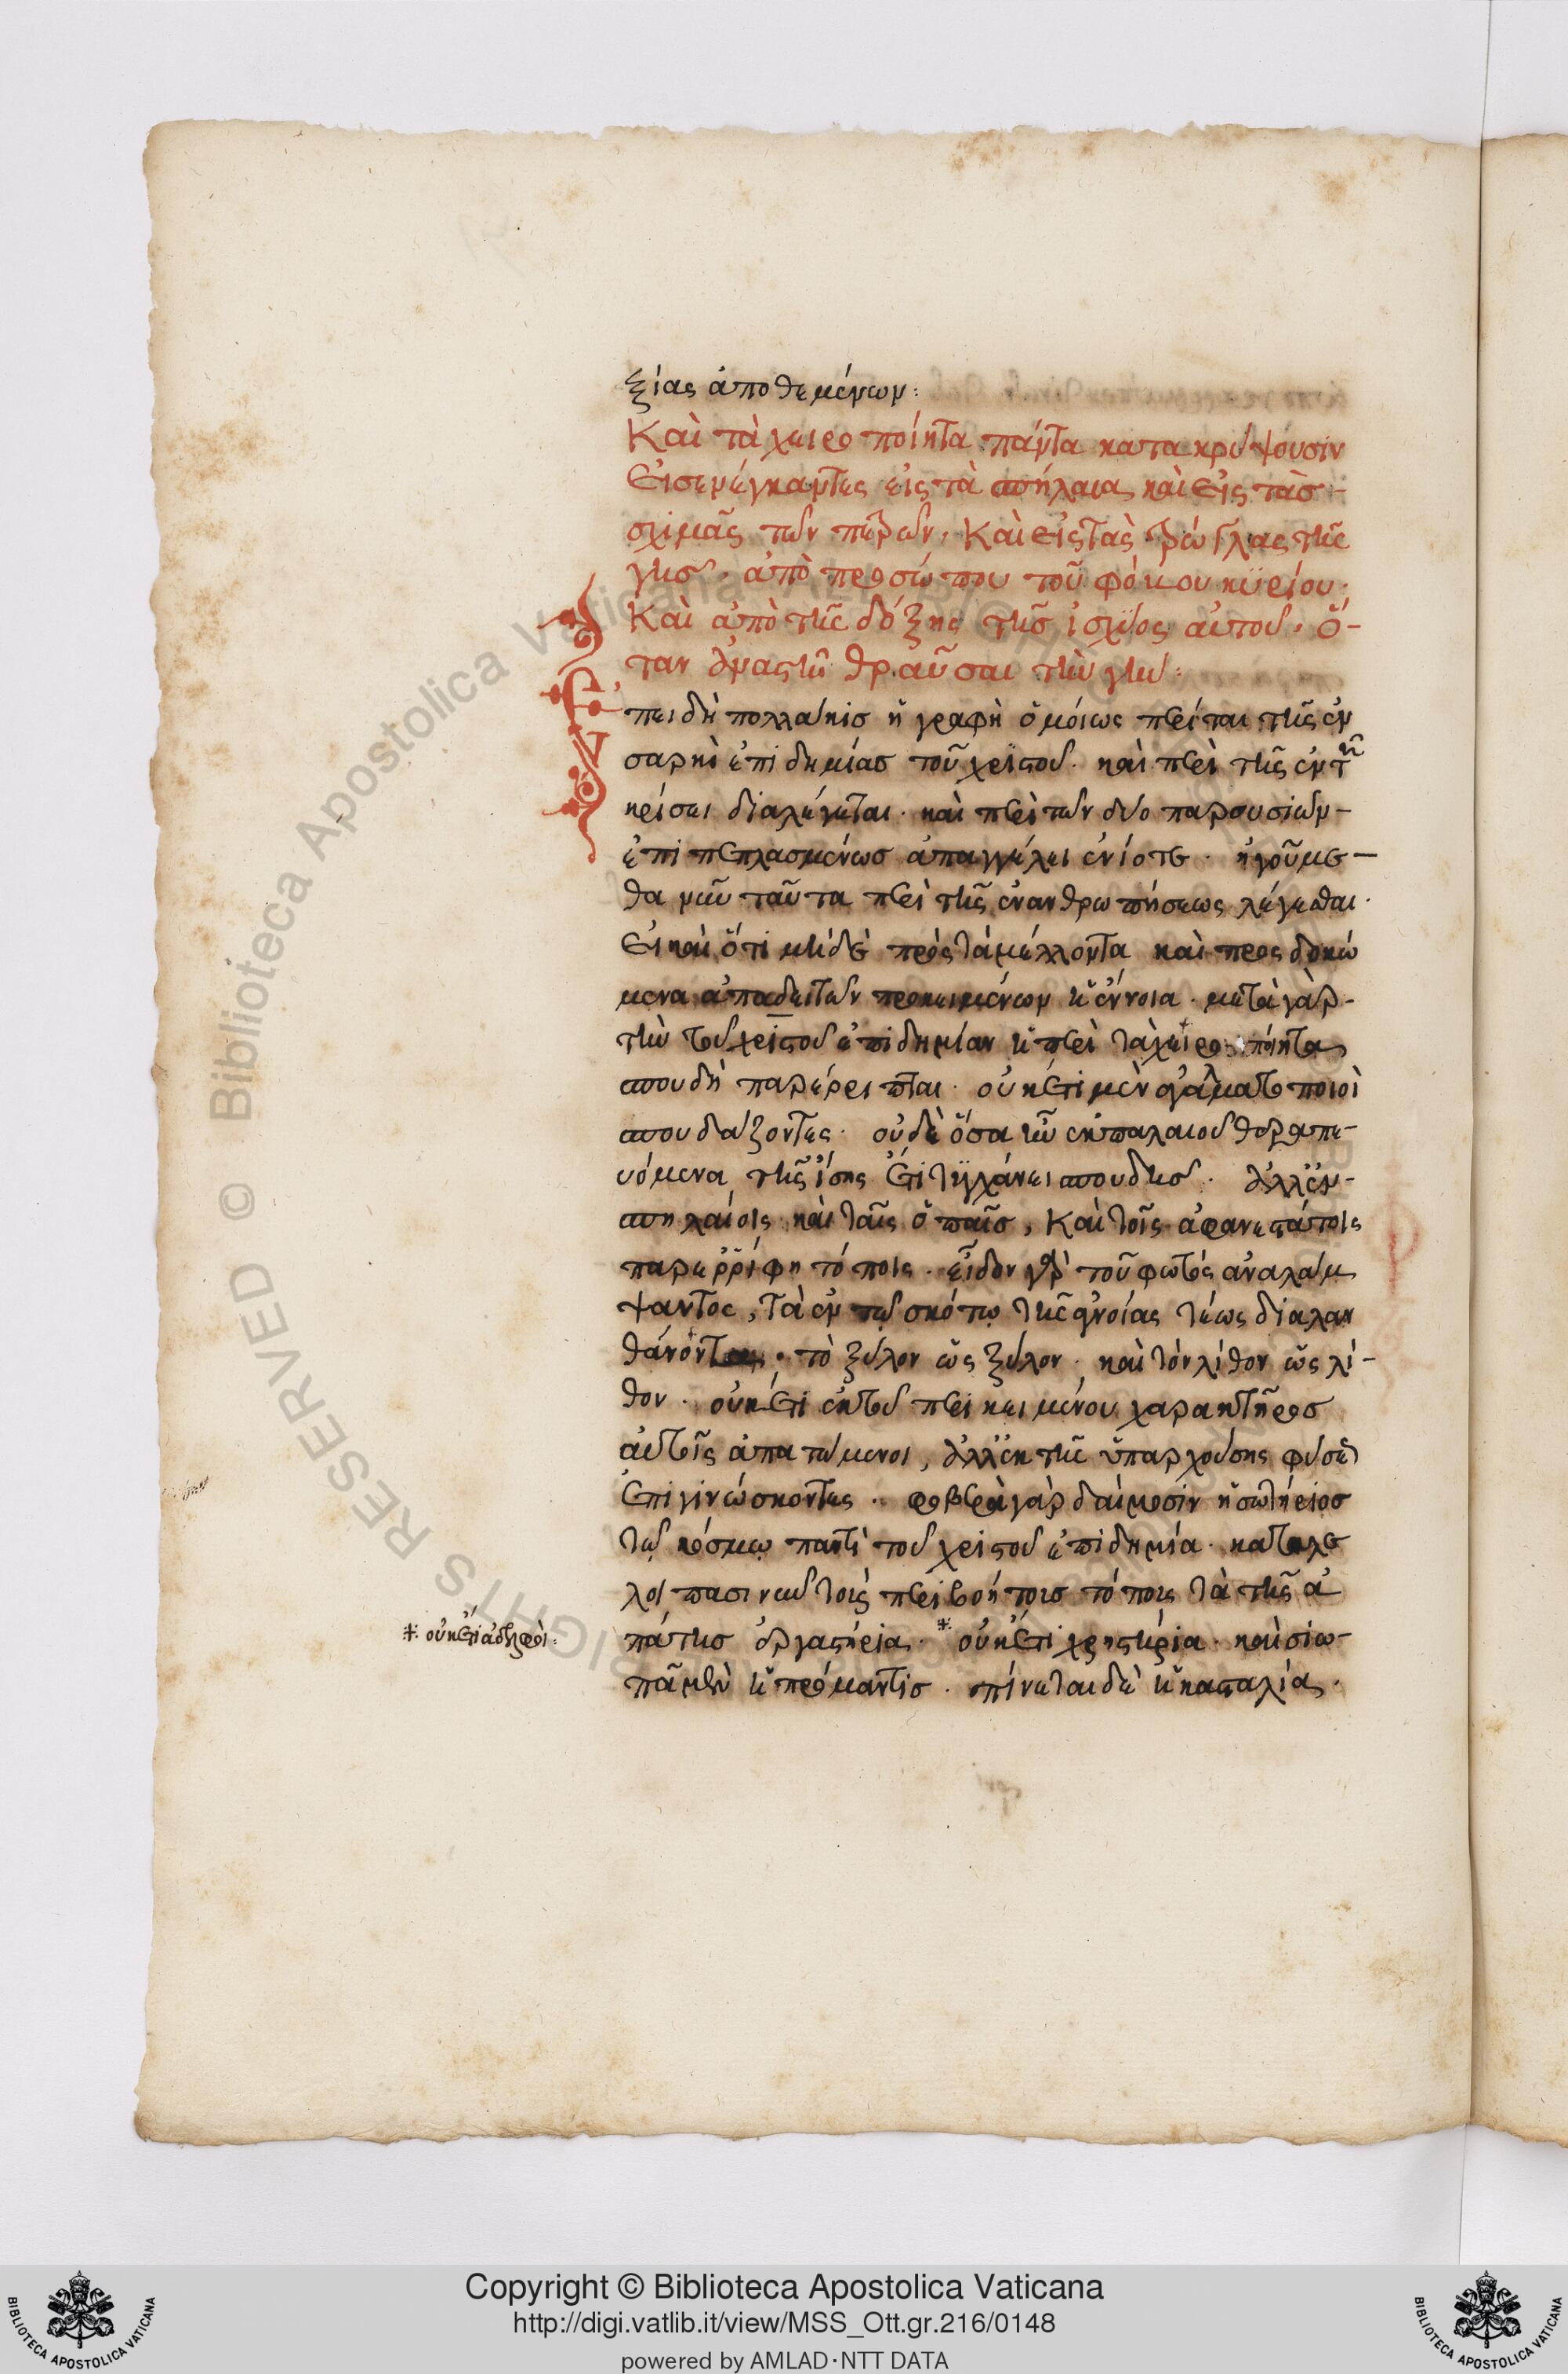 ξίας ἀποθεμένων:
Καὶ τὰ χειροποίητα πάντα κατακρύψουσιν
εἰσενέγκαντες εἰς τὰ σπήλαια καὶ εἰς τὰσ-
σχιμὰς τῶν πετρῶν. Καὶ εἰς τὰς τρώγλας τῆς
γῆσ. ἀπὸ προσώπου τοῦ φόβου κυρίου.
Καὶ ἀπὸ τῆς δόξης τῆσ ἰσχύος αὐτοῦ. ὅ-
ταν ἀναστῆ θραῦσαι τὴν γῆν:
πειδὴ πολλάκισ ἡ γραφὴ ὁμοίως περί τε τῆς ἐν
σαρκὶ ἐπιδημίασ τοῦ χριστοῦ. καὶ περὶ τῆς ἐν τῆ
κρίσει διαλέγεται. καὶ περὶ τῶν δύο παρουσιῶν-
ἐπιπεπλασμένωσ ἀπαγγέλει ἐνίοτε. ἡγούμε-
θα νῦν ταῦτα περὶ τῆς ἐνανθρωπήσεως λέγεσθαι.
εἰ καὶ ὅτι μηδὲ πρὸς τὰ μέλλοντα καὶ προσδοκώ
μενα ἀπάδει τῶν προκειμένων ἡ ἔννοια. μετὰ γὰρ-
τὴν τοῦ χριστοῦ ἐπιδημίαν ἡ περὶ τὰ χειροποίητα
σπουδὴ παρέρριπται. οὐκέτι μὲν ἀγαλματοποιοὶ
σπουδάζοντες. οὐδὲ ὅσα ἦν ἐκ παλαιοῦ θεραπευ-
υόμενα τῆς ἴσης ἔτι τυγχάνει σπουδῆσ. ἀλλ' ἐν-
σπηλαίοις καὶ ταῖς ὀπαῖσ, Καὶ τοῖς ἀφανεστάτοις
παρερρίφη τόποις. εἶδον γὰρ τοῦ φωτὸς ἀναλάμ
ψαντος, τὰ ἐν τῶ σκότω τῆς ἀγνοίας τέως διαλαν
θάνοντα. τὸ ξύλον ὡς ξύλον. καὶ τὸν λίθον ὡς λί-
θον. οὐκέτι ἐκ τοῦ περικειμένου χαρακτῆροσ
αὐτοῖς ἀπατώμενοι, ἀλλ' ἐκ τῆς ὑπαρχούσης φύσεως
ἐπιγινώσκοντες. φοβερὰ γὰρ δαίμοσιν ἡ σωτήριοσ
τῶ κόσμω παντὶ τοῦ χριστοῦ ἐπιδημία. καταλε
λοίπασι νῦν τοῖς περιβοήτοισ τόποις τὰ τῆς ἀ
πάτησ ἐργαστήρια. ⁜ οὐκέτι χρηστήρια. καὶ σιω-
πᾶ μὲν ἡ πρόμαντισ. πίνεται δὲ ἡ κασταλία.
⁜ οὐκέτι ἀδελφοὶ:
Copyright © Biblioteca Apostolica Vaticana
http://digi.vatlib.it/view/MSS_Ott.gr.216/0148
powered by AMLAD·NTT DATA
BIBLIOTECA APOSTOLICA VATICANA
BIBLIOTECA APOSTOLICA VATICANA